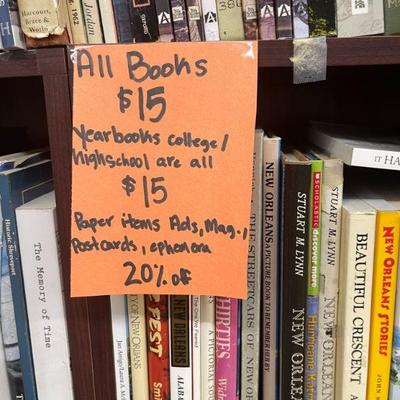 Harcourt,
Brace &
World
Jordan
1963
All Books
$15
Yearbooks college/
highschool are all
$15
Paper items Ads, Mag.,
Postcards, ephemera
20% of
The Memory of Time
Historic Shreveport
NEW ORLEANS A PICTURE BOOK TO REMEMBER HER BY
THE STREETCARS OF NEW
STUART M. LYNN
NEW ORLEANS
SCHOLASTIC
discover more
Hurricane
STUART M. LYNN
NEW ORLEANS
IT HA
BEAUTIFUL CRESCENT
NEW ORLEANS STORIES
JOHN